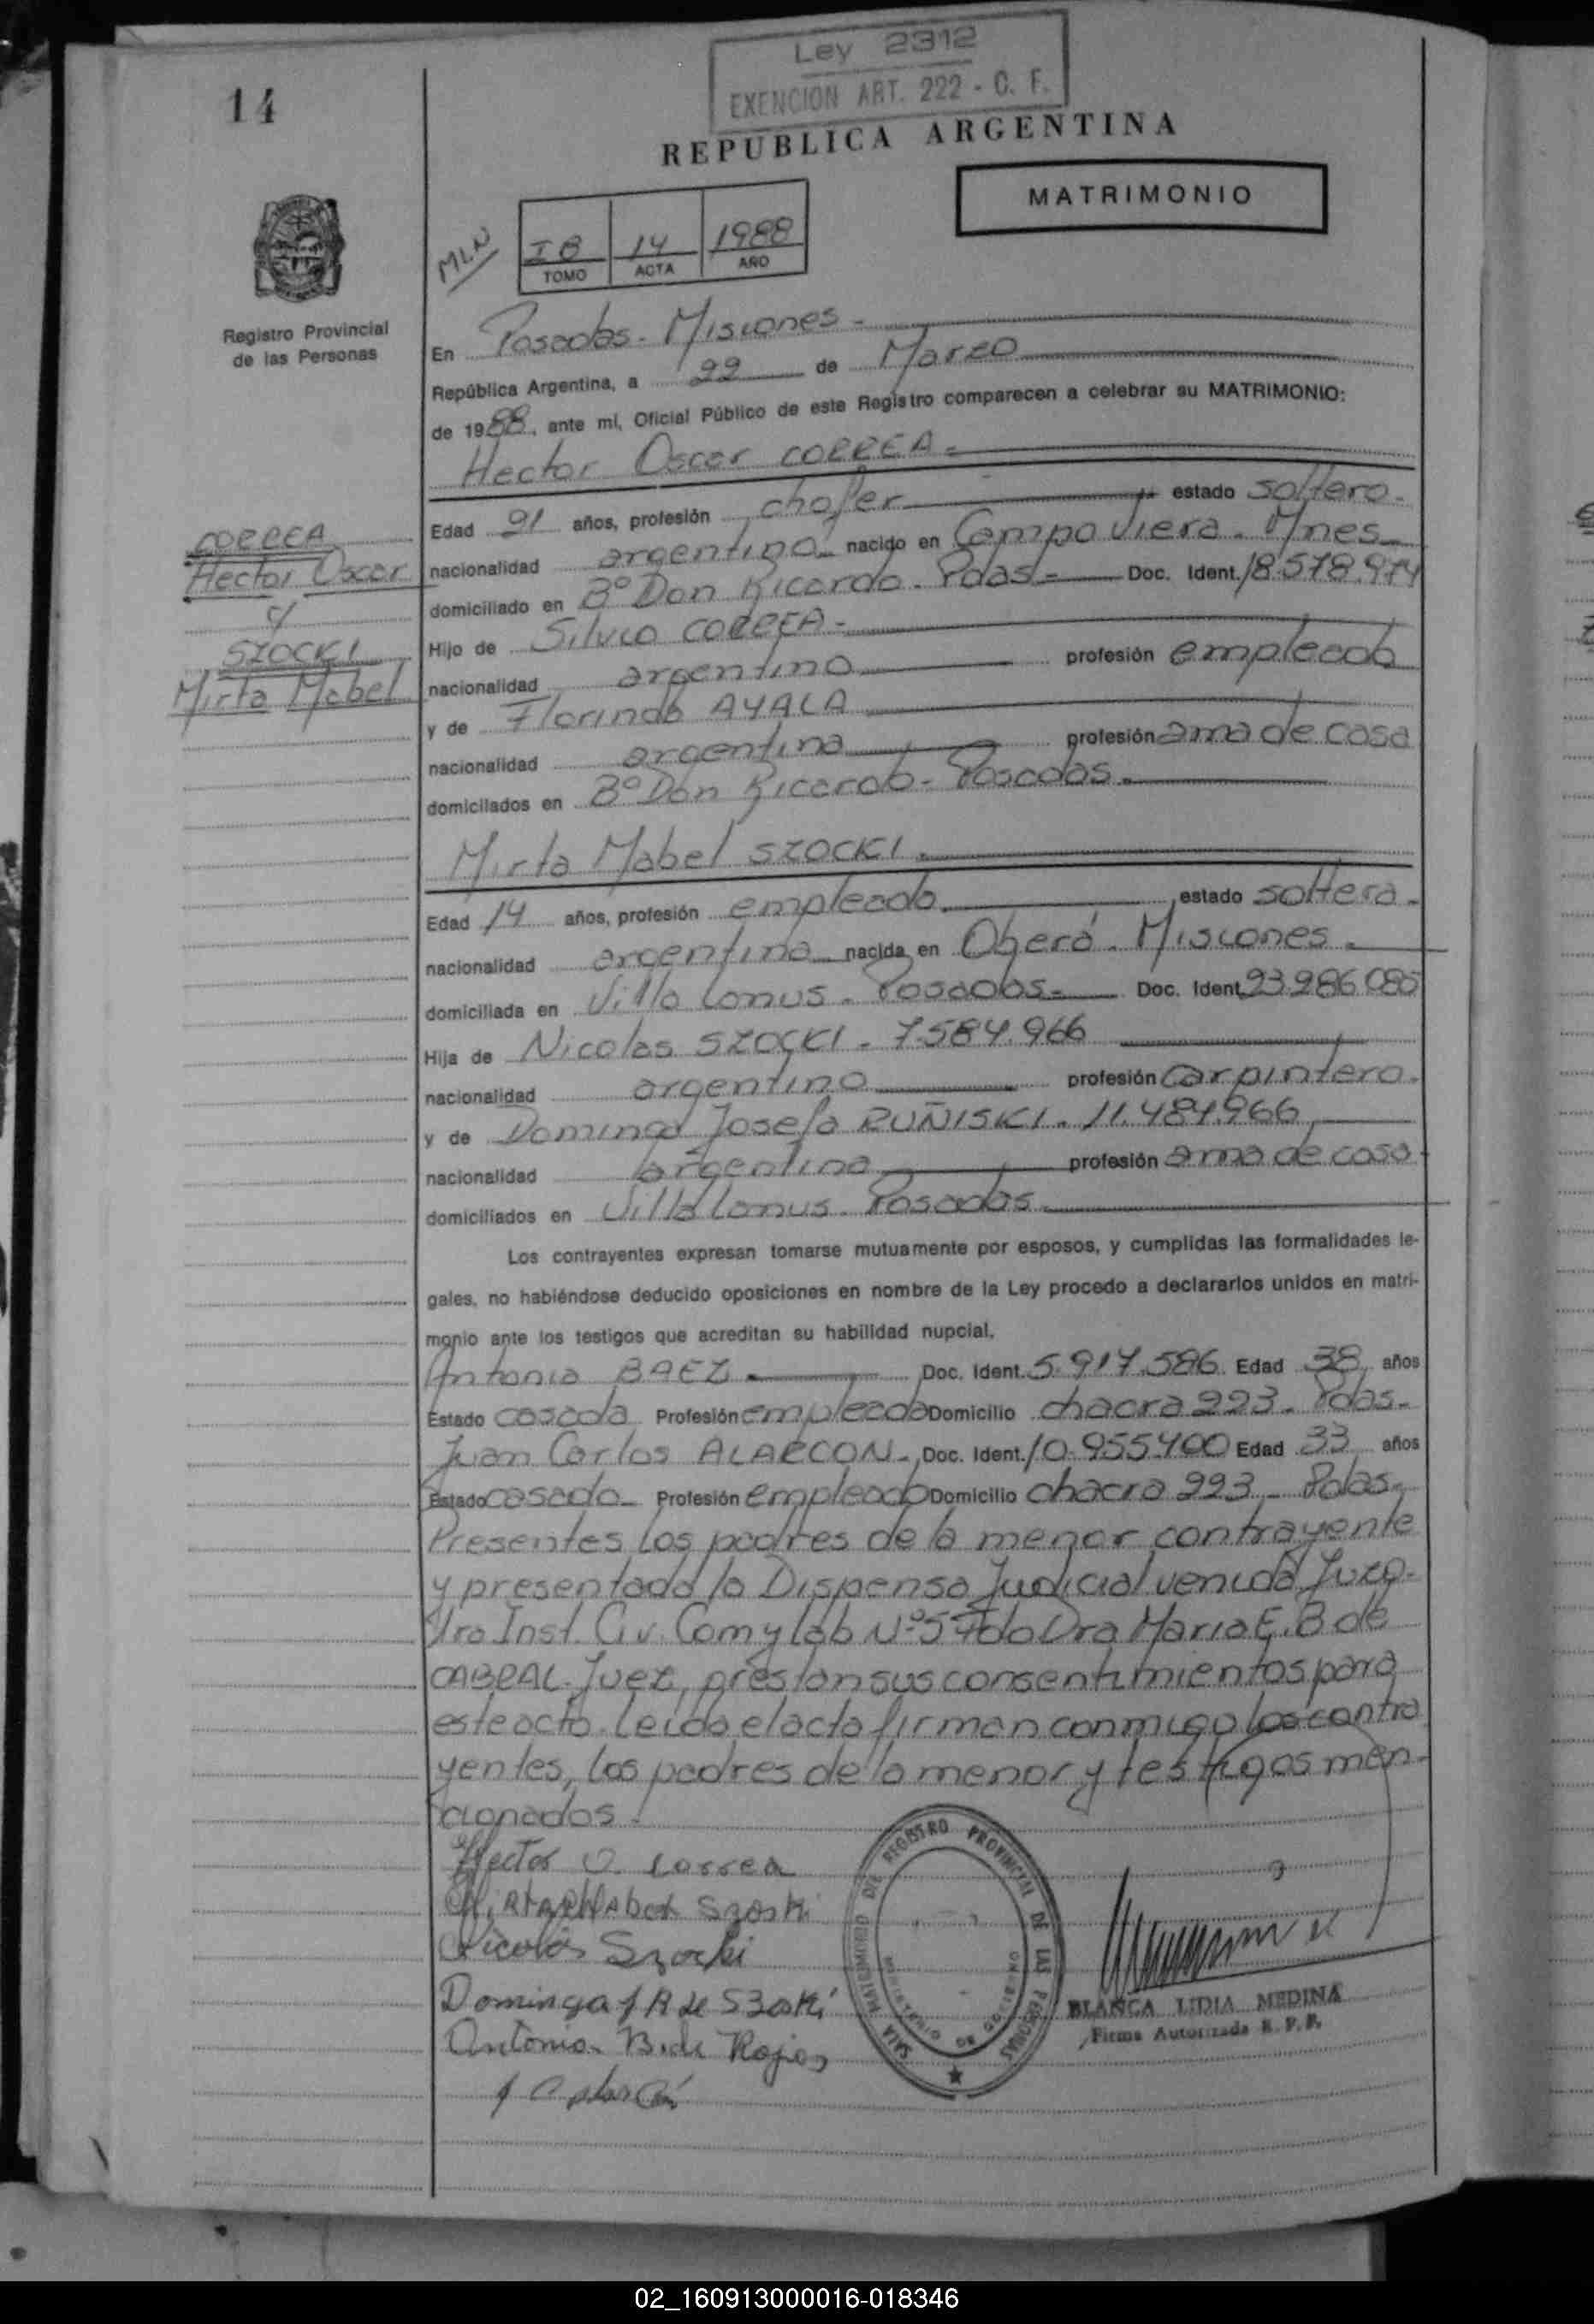 Ley 2312
EXENCION ART. 222 - C. F.
14
REPUBLICA ARGENTINA
MATRIMONIO
MLN
I B 14 1988
TOMO ACTA AÑO
Registro Provincial
de las Personas
En Posadas - Misiones -
República Argentina, a 22 de Marzo
de 1988, ante mí, Oficial Público de este Registro comparecen a celebrar su MATRIMONIO:
Hector Oscar CORREA -
Edad 21 años, profesión chofer estado soltero -
CORREA
Hector Oscar
y
SZOCKI
Mirta Mabel
nacionalidad argentino nacido en Campo Viera - Mnes -
domiciliado en Bº Don Ricardo - Pdas - Doc. Ident. 18.578.974
Hijo de Silvio CORREA -
nacionalidad argentino profesión empleado
y de Florinda AYALA
nacionalidad argentina profesión ama de casa
domiciliados en Bº Don Ricardo - Posadas -
Mirta Mabel SZOCKI -
Edad 14 años, profesión empleada estado soltera -
nacionalidad argentina nacida en Oberá - Misiones -
domiciliada en Villa Lanus - Posadas - Doc. Ident. 23.286.085
Hija de Nicolas SZOCKI - 7.584.966
nacionalidad argentino profesión carpintero -
y de Dominga Josefa RUÑISKI - 11.484.966
nacionalidad argentina profesión ama de casa
domiciliados en Villa Lanus - Posadas -
Los contrayentes expresan tomarse mutuamente por esposos, y cumplidas las formalidades le-
gales, no habiéndose deducido oposiciones en nombre de la Ley procedo a declararlos unidos en matri-
monio ante los testigos que acreditan su habilidad nupcial.
Antonia BAEZ - Doc. Ident. 5.917.586 Edad 38 años
Estado casada Profesión empleada Domicilio chacra 223 - Pdas -
Juan Carlos ALARCON - Doc. Ident. 10.955.400 Edad 33 años
Estado casado - Profesión empleado Domicilio chacra 223 - Pdas -
Presentes los padres de la menor contrayente
y presentada la Dispensa Judicial venida Juzg.
1ra Inst. Civ. Com y Lab Nº 5 Fdo Dra Maria E. B de
CABRAL - Juez, prestan sus consentimientos para
este acto. Leida el acta firman conmigo los contra
yentes, los padres de la menor y testigos men-
cionados.
Hector O. Correa
Mirta Mabel Szoski
Nicolás Szocki
Dominga J R de Szoski
Antonia B. de Rojas
SALA MATRIMONIO DEL REGISTRO PROVINCIAL DE LAS PERSONAS
BLANCA LIDIA MEDINA
Firma Autorizada R. P. P.
02_160913000016-018346